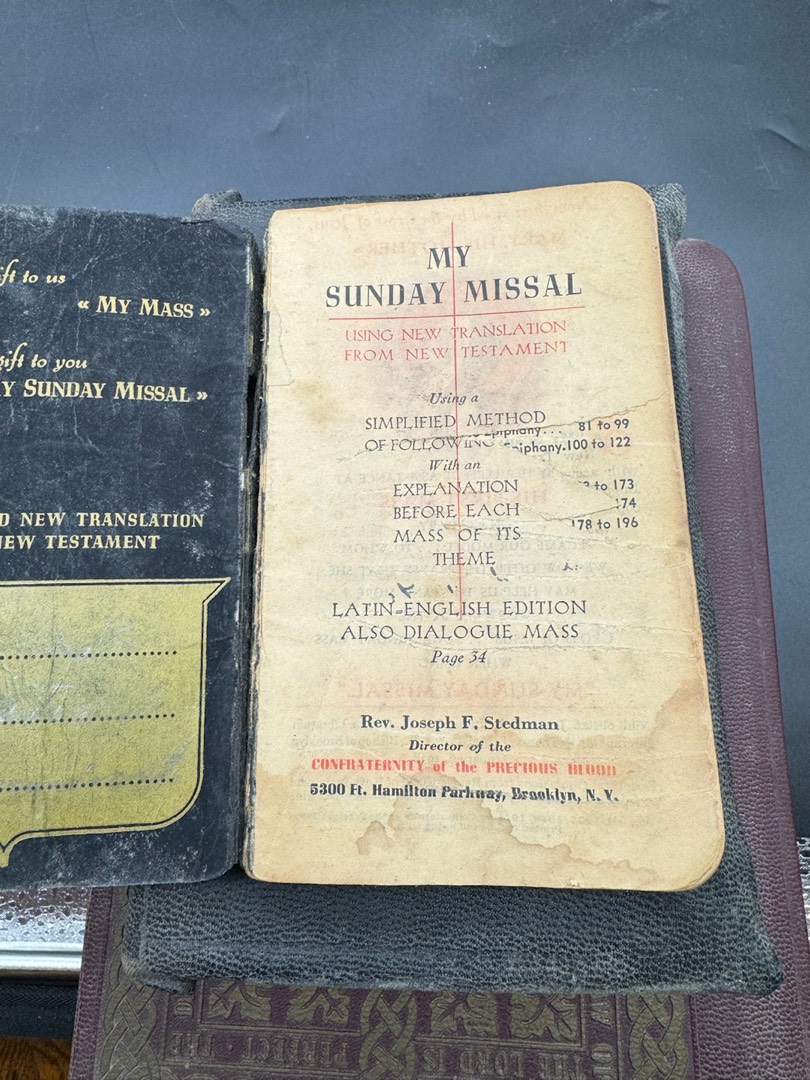 ft to us
« MY MASS »
gift to you
Y SUNDAY MISSAL »
D NEW TRANSLATION
NEW TESTAMENT
MY
SUNDAY MISSAL
USING NEW TRANSLATION
FROM NEW TESTAMENT
Using a
SIMPLIFIED METHOD
OF FOLLOWING
With an
EXPLANATION
BEFORE EACH
MASS OF ITS
THEME
piphany... 81 to 99
iphany.100 to 122
to 173
74
178 to 196
LATIN-ENGLISH EDITION
ALSO DIALOGUE MASS
Page 34
Rev. Joseph F. Stedman
Director of the
CONFRATERNITY of the PRECIOUS BLOOD
5300 Ft. Hamilton Parkway, Brooklyn, N. Y.
THE LORD IS PERFECT